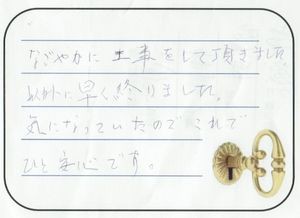 なごやかに工事をして頂きました。
以外に早く終りました。
気になっていたのでこれで
ひと安心です。